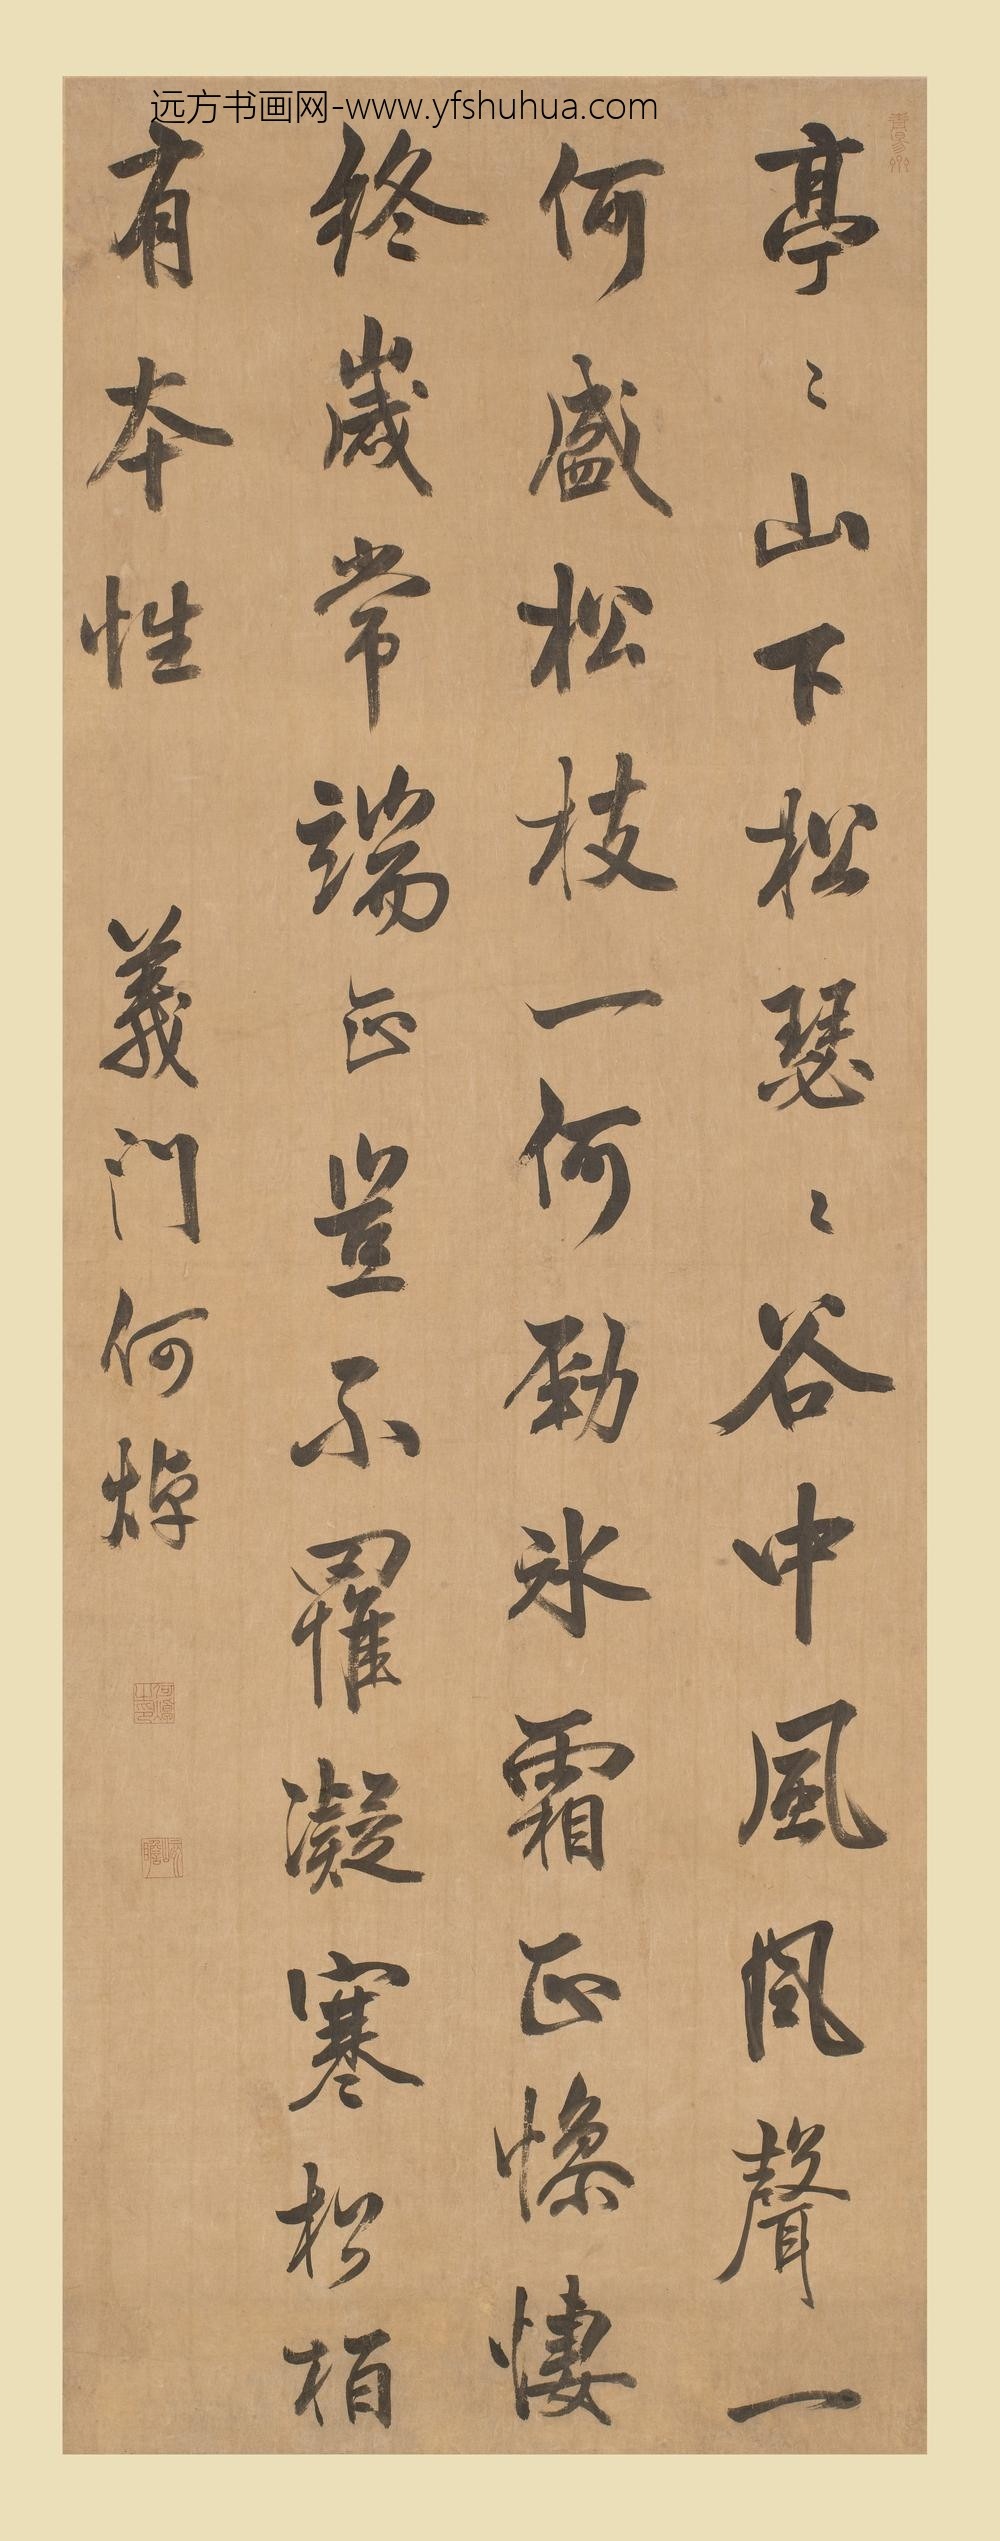 远方书画网-www.yfshuhua.com
亭〻山下松瑟〻谷中風風聲一
何盛松枝一何勁冰霜正慘悽
終歲常端正豈不罹凝寒松柏
有本性
義門何焯